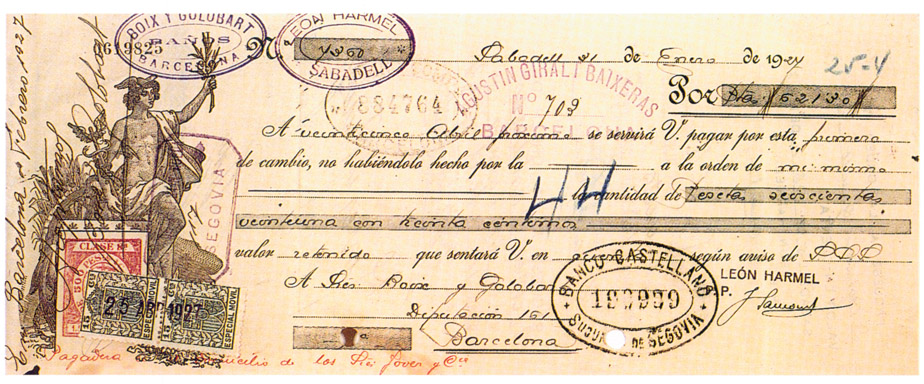 BOIX Y GOLOBART
PAÑOS
BARCELONA
0619825
LEÓN HARMEL
SABADELL
Nº 4360
Sabadell 31 de Enero de 1927
25-4
884764
AGUSTIN GIRALT BAIXERAS
Nº 703
BARCELONA
Por Pts 621'30
A veinticinco Abril próximo se servirá V. pagar por esta primera
de cambio, no habiéndolo hecho por la a la orden de mi mismo
la cantidad de Pesetas seiscientas
veintiuna con treinta céntimos
44
valor retenido que sentará V. en según aviso de
LEÓN HARMEL
P.
A Sres Boix y Golobart
Diputación 161
Barcelona
1ª
BANCO CASTELLANO
182929
DE SEGOVIA
SEGOVIA
CLASE
25 ABR 1927
15 ESPECIAL MOVIL 15
15 ESPECIAL MOVIL
Barcelona Febrero 1927
Boix y Golobart
Pagadera domicilio de los Sres Jover y Cia